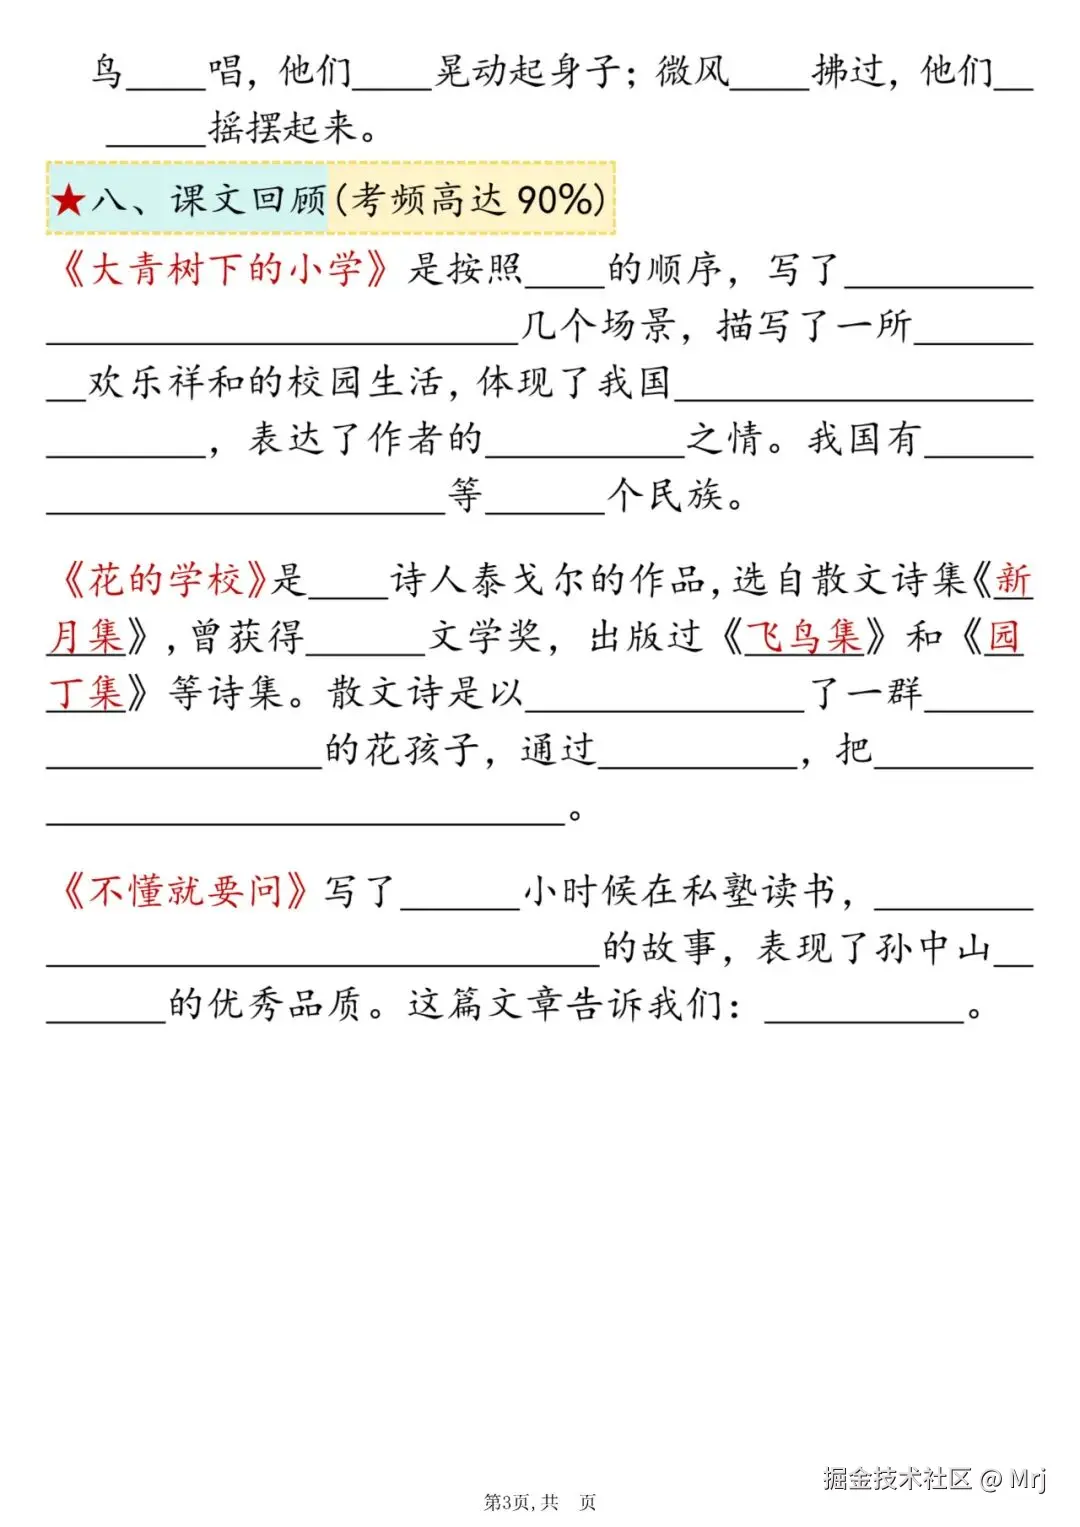 鸟____唱，他们____晃动起身子；微风____拂过，他们__
_____摇摆起来。
★八、课文回顾(考频高达 90%)
《大青树下的小学》是按照____的顺序，写了__________
________________________几个场景，描写了一所______
__欢乐祥和的校园生活，体现了我国__________________
________，表达了作者的__________之情。我国有______
____________________等______个民族。
《花的学校》是____诗人泰戈尔的作品，选自散文诗集《新
月集》，曾获得______文学奖，出版过《飞鸟集》和《园
丁集》等诗集。散文诗是以______________了一群______
______________的花孩子，通过__________，把________
__________________________。
《不懂就要问》写了______小时候在私塾读书，________
____________________________的故事，表现了孙中山__
______的优秀品质。这篇文章告诉我们：__________。
掘金技术社区 @ Mrj
第3页,共 页